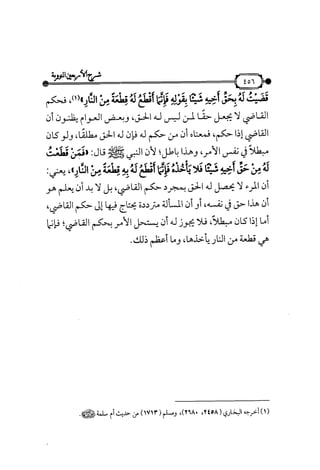 شرح الأربعين النووية
٤٥٦
قَضَيْتُ لَهُ بِحَقِّ أَخِيهِ شَيْئًا بِقَوْلِهِ فَإِنَّمَا أَقْطَعُ لَهُ قِطْعَةً مِنَ النَّارِ»(١)، فحكم
القاضي لا يجعل حقًا لمن ليس له الحق، وبعض العوام يظنون أن
القاضي إذا حكم، فمعناه أن من حكم له فإن له الحق مطلقًا، ولو كان
مبطلاً في نفس الأمر، وهذا باطل؛ لأن النبي ﷺ قال: «فَمَنْ قَطَعْتُ
لَهُ مِنْ حَقِّ أَخِيهِ شَيْئًا فَلَا يَأْخُذْهُ فَإِنَّمَا أَقْطَعُ لَهُ بِهِ قِطْعَةً مِنَ النَّارِ»، يعني:
أن المرء لا يحصل له الحق بمجرد حكم القاضي، بل لا بد أن يعلم هو
أن هذا حق في نفسه، أو أن المسألة مترددة يحتاج فيها إلى حكم القاضي،
أما إذا كان مبطلاً، فلا يجوز له أن يستحل الأمر بحكم القاضي؛ فإنما
هي قطعة من النار يأخذها، وما أعظم ذلك.
(١) أخرجه البخاري (٢٤٥٨، ٢٦٨٠)، ومسلم (١٧١٣) من حديث أم سلمة